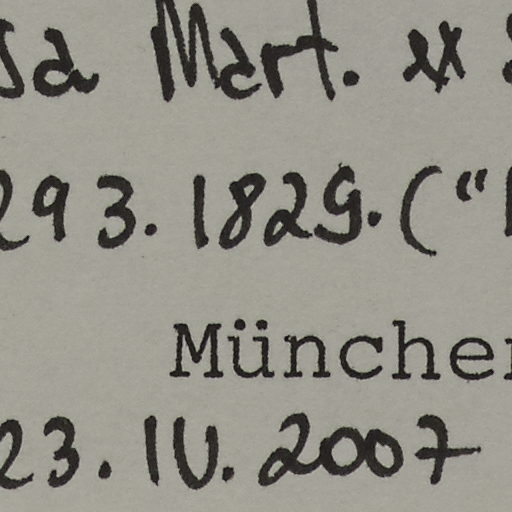 sa Mart. ex
293. 1829. ("
München
23. IV. 2007